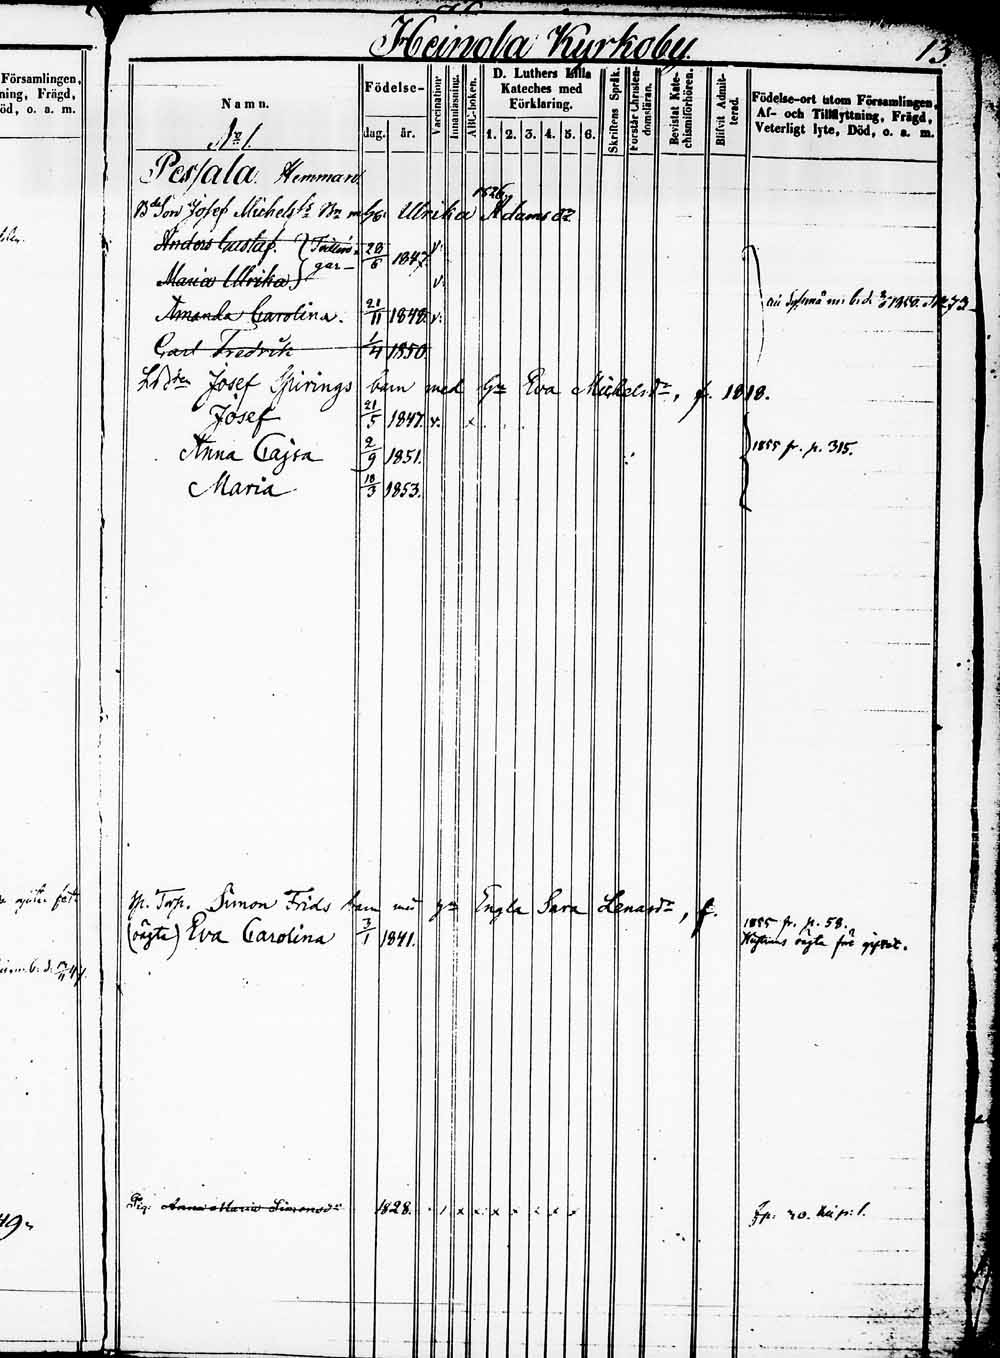 Heinola Kyrkoby.
13
Församlingen,
ning, Frägd,
öd, o. a. m.
Namn.
Födelse-
dag. år.
Vaccination
Innanläsning.
ABC-boken.
D. Luthers Lilla
Kateches med
Förklaring.
1. 2. 3. 4. 5. 6.
Skriftens Språk.
Förstår Christen-
domsläran.
Bevistat Kate-
chismiförhören.
Blifvit Admit-
terad.
Födelse-ort utom Församlingen,
Af- och Tillflyttning, Frägd,
Veterligt lyte, Död, o. a. m.
No 1.
Pessala Hemman.
1826
Josef Michels Ulrika Adamsdr
Anders Gustaf. 29/6 1847. v.
Maria Ulrika v.
Amanda Carolina. 21/11 1848. v.
Carl Fredrik 1/4 1850.
Josef Spirings barn med Hu Eva Michelsdr, f. 1818.
Josef 21/5 1847. v. x
Anna Cajsa 2/9 1851.
1855 fr. p. 315.
Maria 18/3 1853.
Simon Frids barn med Engla Sara Lenardr, f.
(oägta) Eva Carolina 3/1 1841.
1855 fr. p. 58.
oägta för
Pig. Anna Maria Simonsdr 1828. x x x x x x x